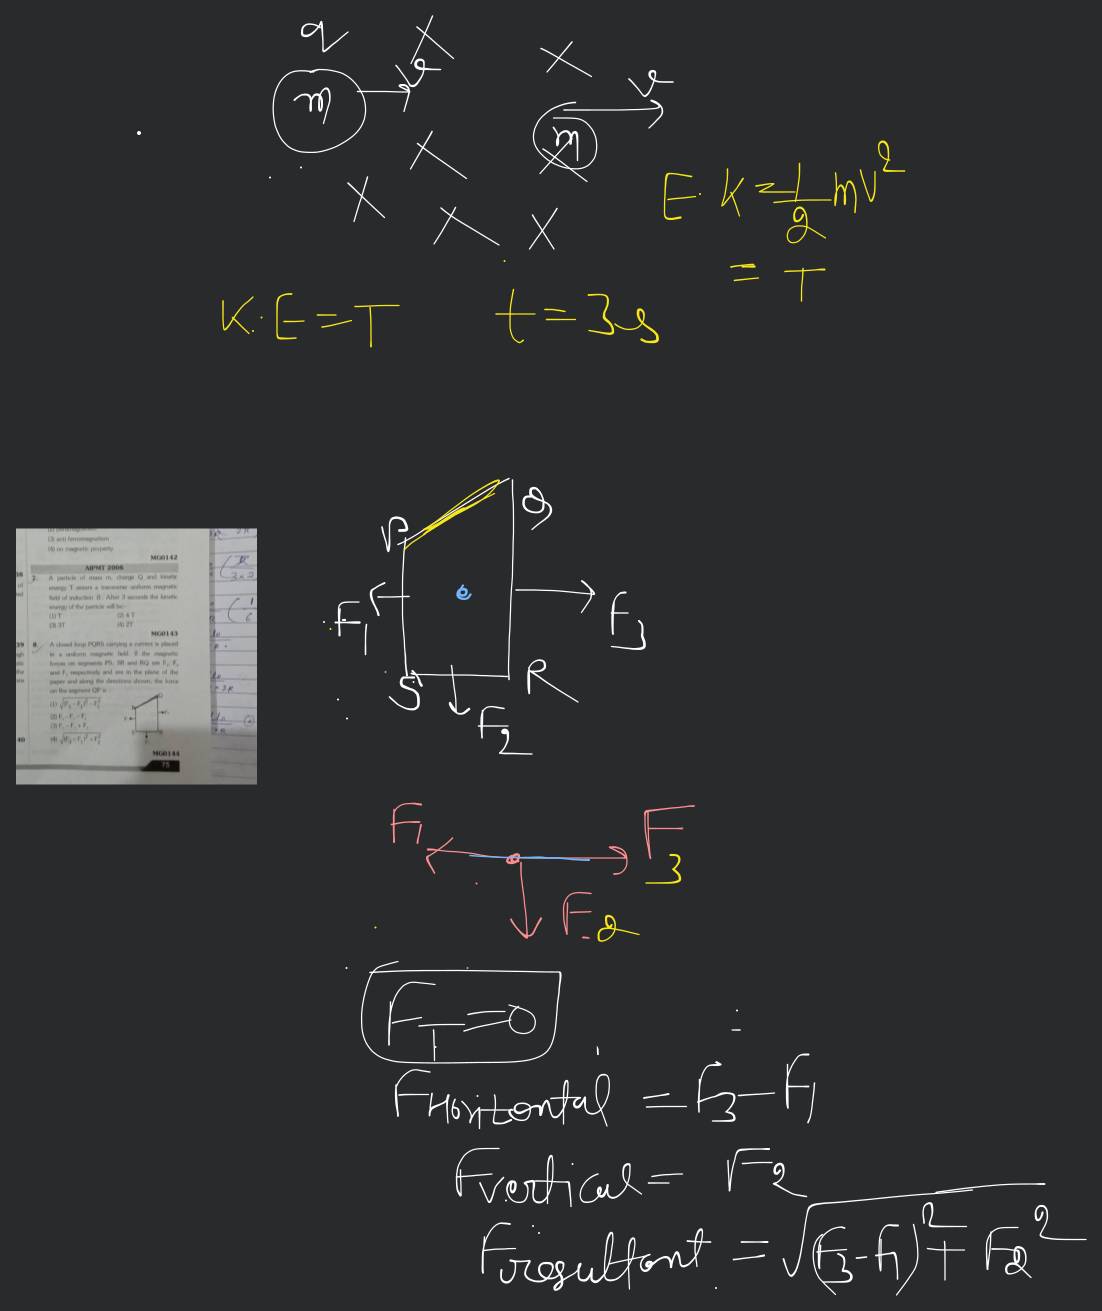 q
m
v
v
m
E.K = 1/2 mv²
= T
K.E = T t = 3s
P
Q
F₁
F₃
S
R
F₂
(3) anti ferromagnetism
(4) no magnetic property
MG0142
AIPMT 2006
7. A particle of mass m, charge Q and kinetic
energy T enters a transverse uniform magnetic
field of induction B. After 3 seconds the kinetic
energy of the particle will be:-
(1) T (2) 4 T
(3) 3T (4) 2T
MG0143
8. A closed loop PQRS carrying a current is placed
in a uniform magnetic field. If the magnetic
forces on segments PS, SR and RQ are F₁, F₂
and F₃ respectively and are in the plane of the
paper and along the directions shown, the force
on the segment QP is
MG0144
75
F₁
F₃
F₂
F_T = 0
F_Horizontal = F₃ − F₁
F_vertical = F₂
F_resultant = √(F₃ − F₁)² + F₂²